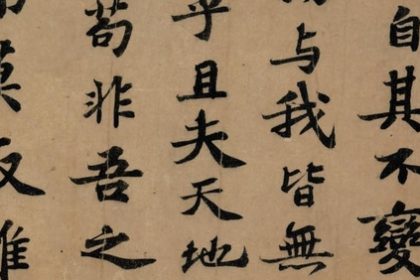 自其不變
与我皆無
乎且夫天地
苟非吾之
莫